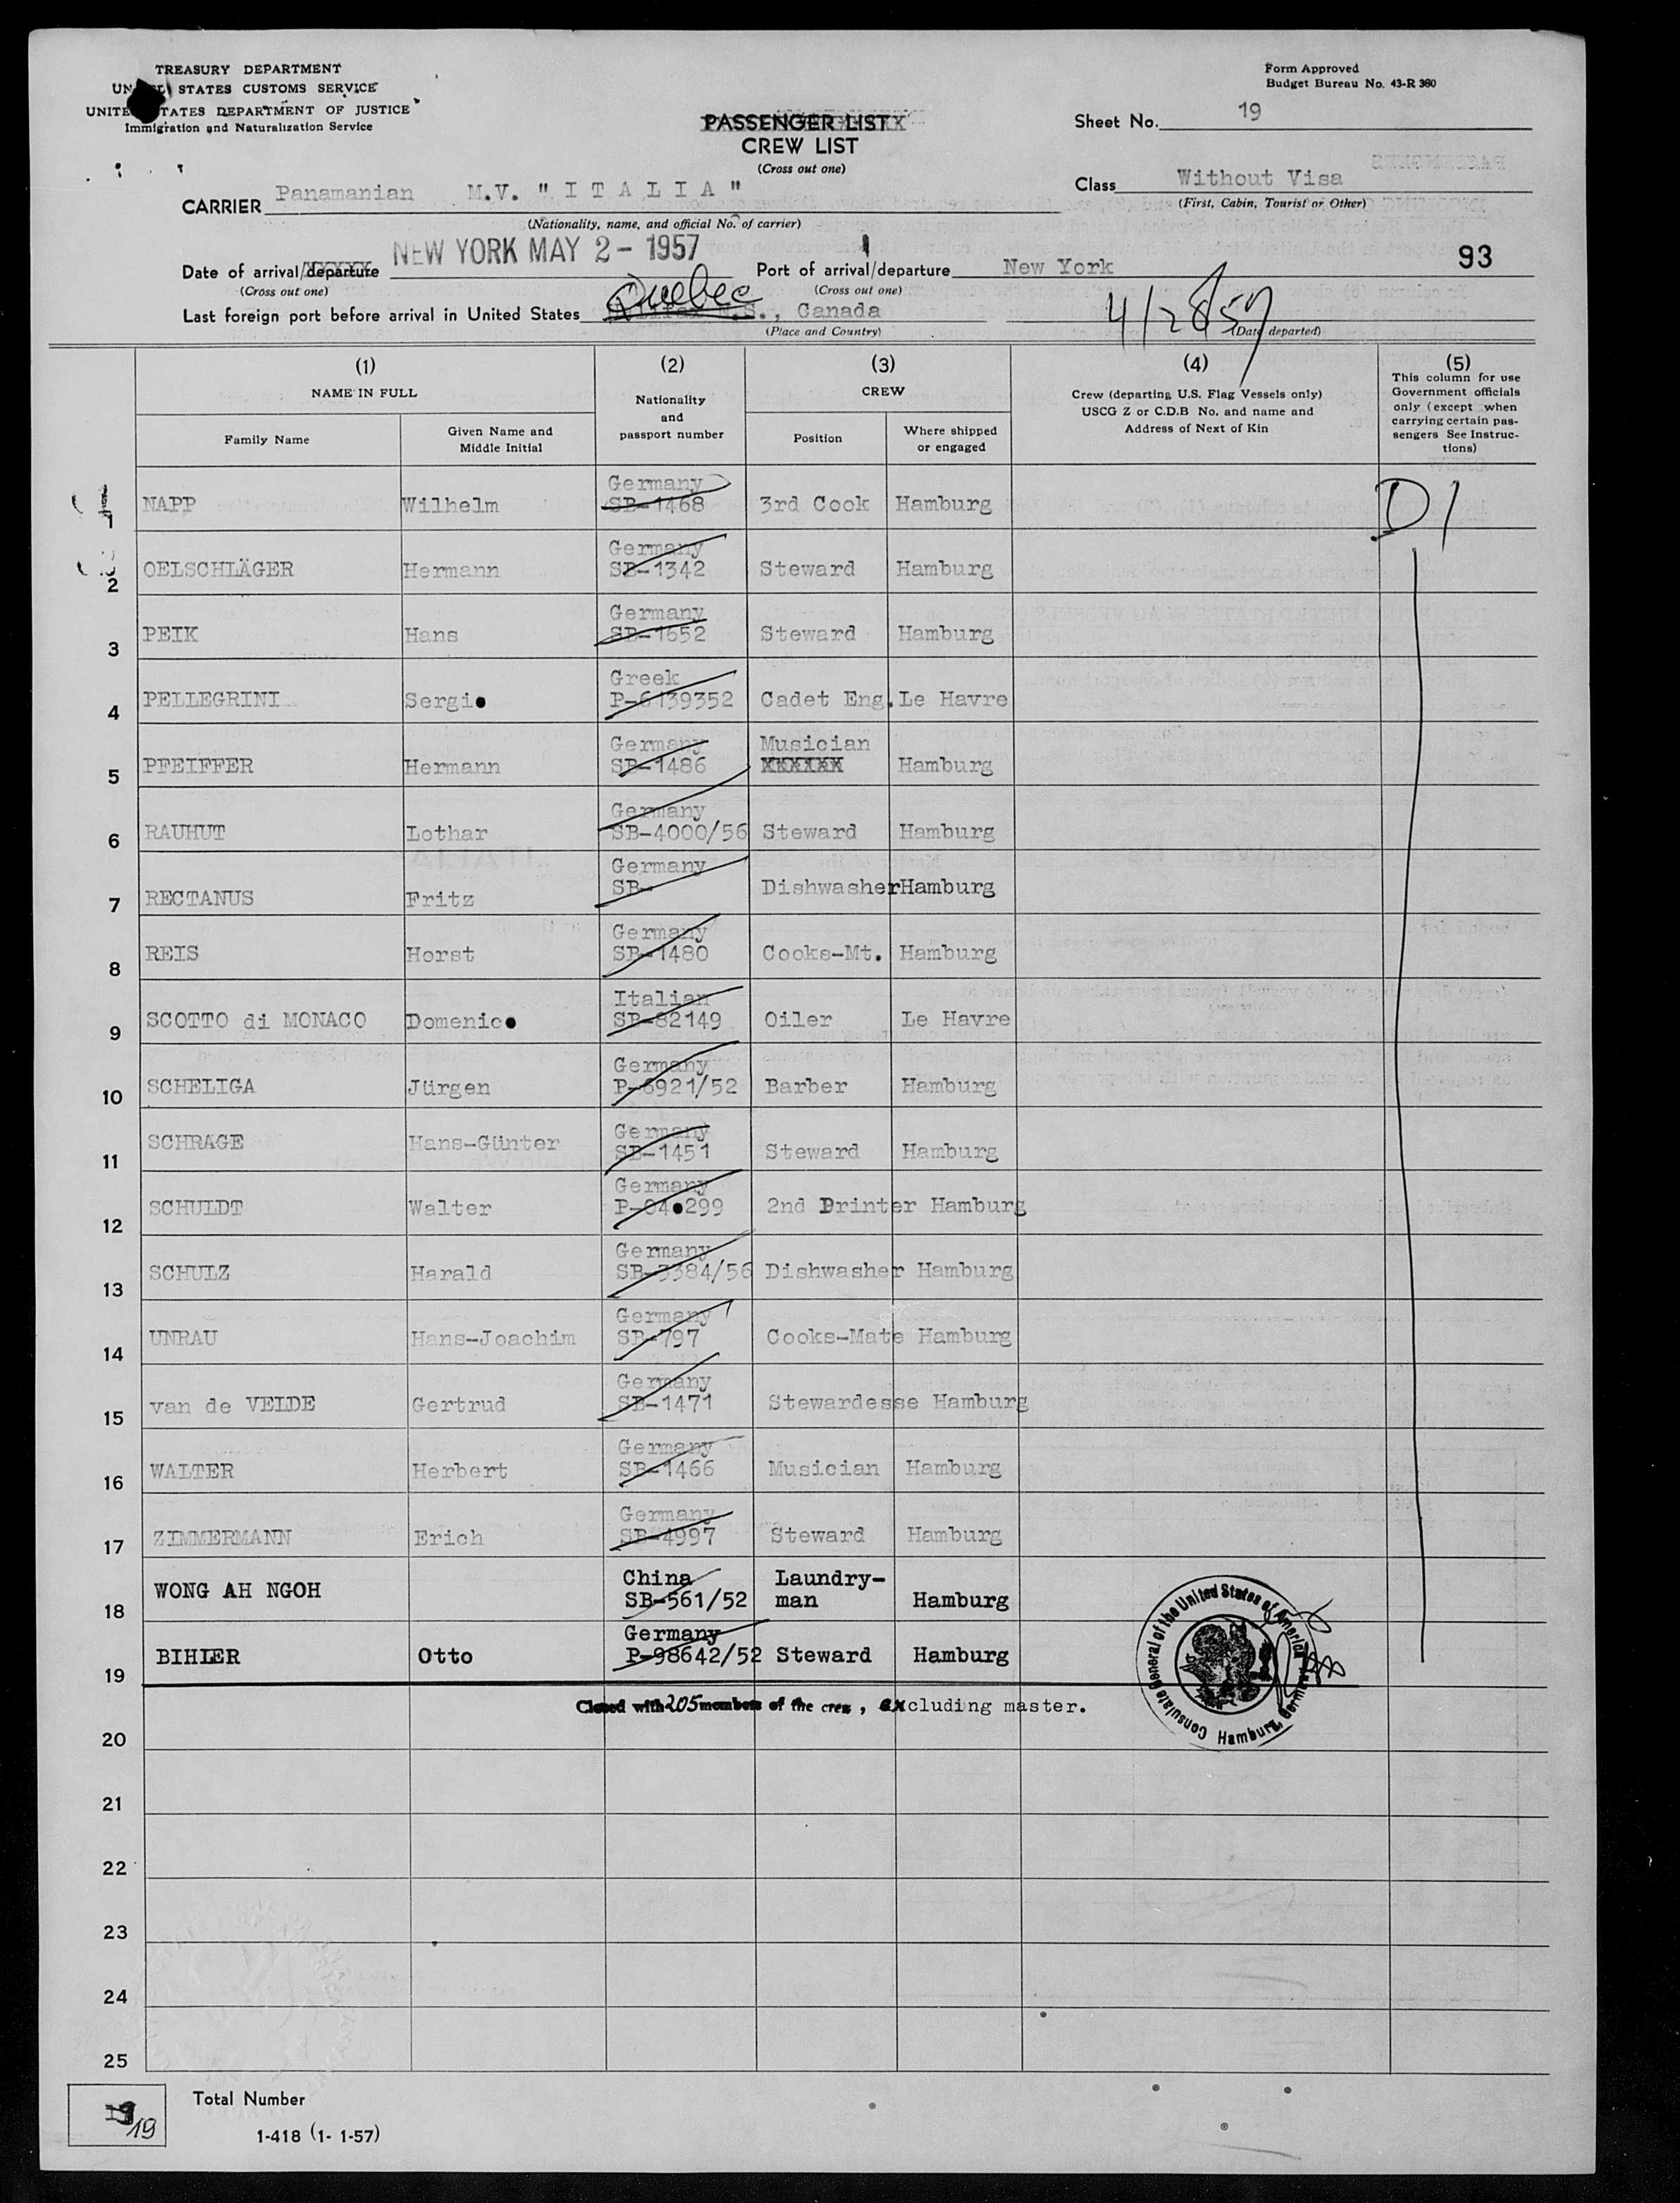 TREASURY DEPARTMENT
STATES CUSTOMS SERVICE
UNITED STATES DEPARTMENT OF JUSTICE
Immigration and Naturalization Service
Form Approved
Budget Bureau No. 43-R 380
PASSENGER LIST
CREW LIST
(Cross out one)
Sheet No. 19
Class Without Visa
(First, Cabin, Tourist or Other)
CARRIER Panamanian M.V. "ITALIA"
(Nationality, name, and official No. of carrier)
Date of arrival/departure NEW YORK MAY 2- 1957
(Cross out one)
Port of arrival/departure New York
(Cross out one)
93
Last foreign port before arrival in United States Quebec Canada
(Place and Country)
4/28/57
(Date departed)
(1) (2) (3) (4) (5)
NAME IN FULL
Family Name
Given Name and Middle Initial
Nationality and passport number
CREW
Position
Where shipped or engaged
Crew (departing U.S. Flag Vessels only)
USCG Z or C.D.B No. and name and
Address of Next of Kin
This column for use
Government officials
only (except when
carrying certain pas-
sengers See Instruc-
tions)
1 NAPP Wilhelm Germany SB-1468 3rd Cook Hamburg D/
2 OELSCHLÄGER Hermann Germany SB-1342 Steward Hamburg
3 PEIK Hans Germany SB-1652 Steward Hamburg
4 PELLEGRINI Sergio Greek P-6139352 Cadet Eng. Le Havre
5 PFEIFFER Hermann Germany SB-1486 Musician XXXXXX Hamburg
6 RAUHUT Lothar Germany SB-4000/56 Steward Hamburg
7 RECTANUS Fritz Germany SB- Dishwasher Hamburg
8 REIS Horst Germany SB-1480 Cooks-Mt. Hamburg
9 SCOTTO di MONACO Domenico Italian SB-82149 Oiler Le Havre
10 SCHELIGA Jürgen Germany P-6921/52 Barber Hamburg
11 SCHRAGE Hans-Günter Germany SB-1451 Steward Hamburg
12 SCHULDT Walter Germany P-040299 2nd Printer Hamburg
13 SCHULZ Harald Germany SB-3384/56 Dishwasher Hamburg
14 UNRAU Hans-Joachim Germany SB-797 Cooks-Mate Hamburg
15 van de VELDE Gertrud Germany SB-1471 Stewardesse Hamburg
16 WALTER Herbert Germany SB-1466 Musician Hamburg
17 ZIMMERMANN Erich Germany SB-4997 Steward Hamburg
18 WONG AH NGOH China SB-561/52 Laundry-man Hamburg
19 BIHLER Otto Germany P-98642/52 Steward Hamburg
Closed with 205 members of the crew, excluding master.
Consulate General of the United States of America Hamburg, Germany
20
21
22
23
24
25
19
Total Number
1-418 (1- 1-57)